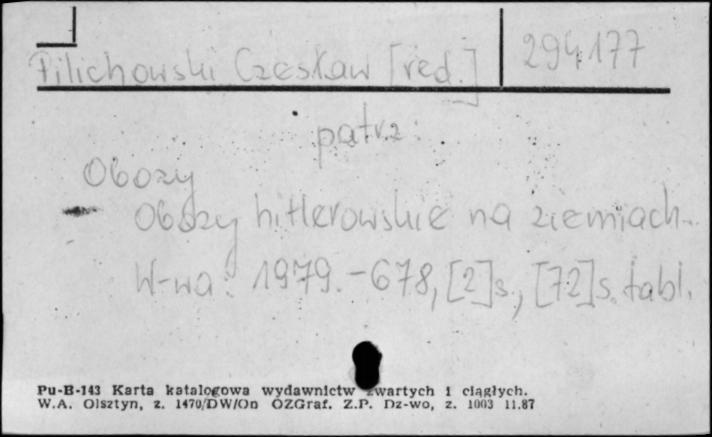 Pilichowski Czesław [red.] 294177
patrz:
Obozy
Obozy hitlerowskie na ziemiach...
W-wa: 1979. - 678, [2]s., [72]s. tabl.
Pu-B-143 Karta katalogowa wydawnictw zwartych i ciągłych.
W.A. Olsztyn, z. 1470/DW/On OZGraf. Z.P. Dz-wo, z. 1003 11.87